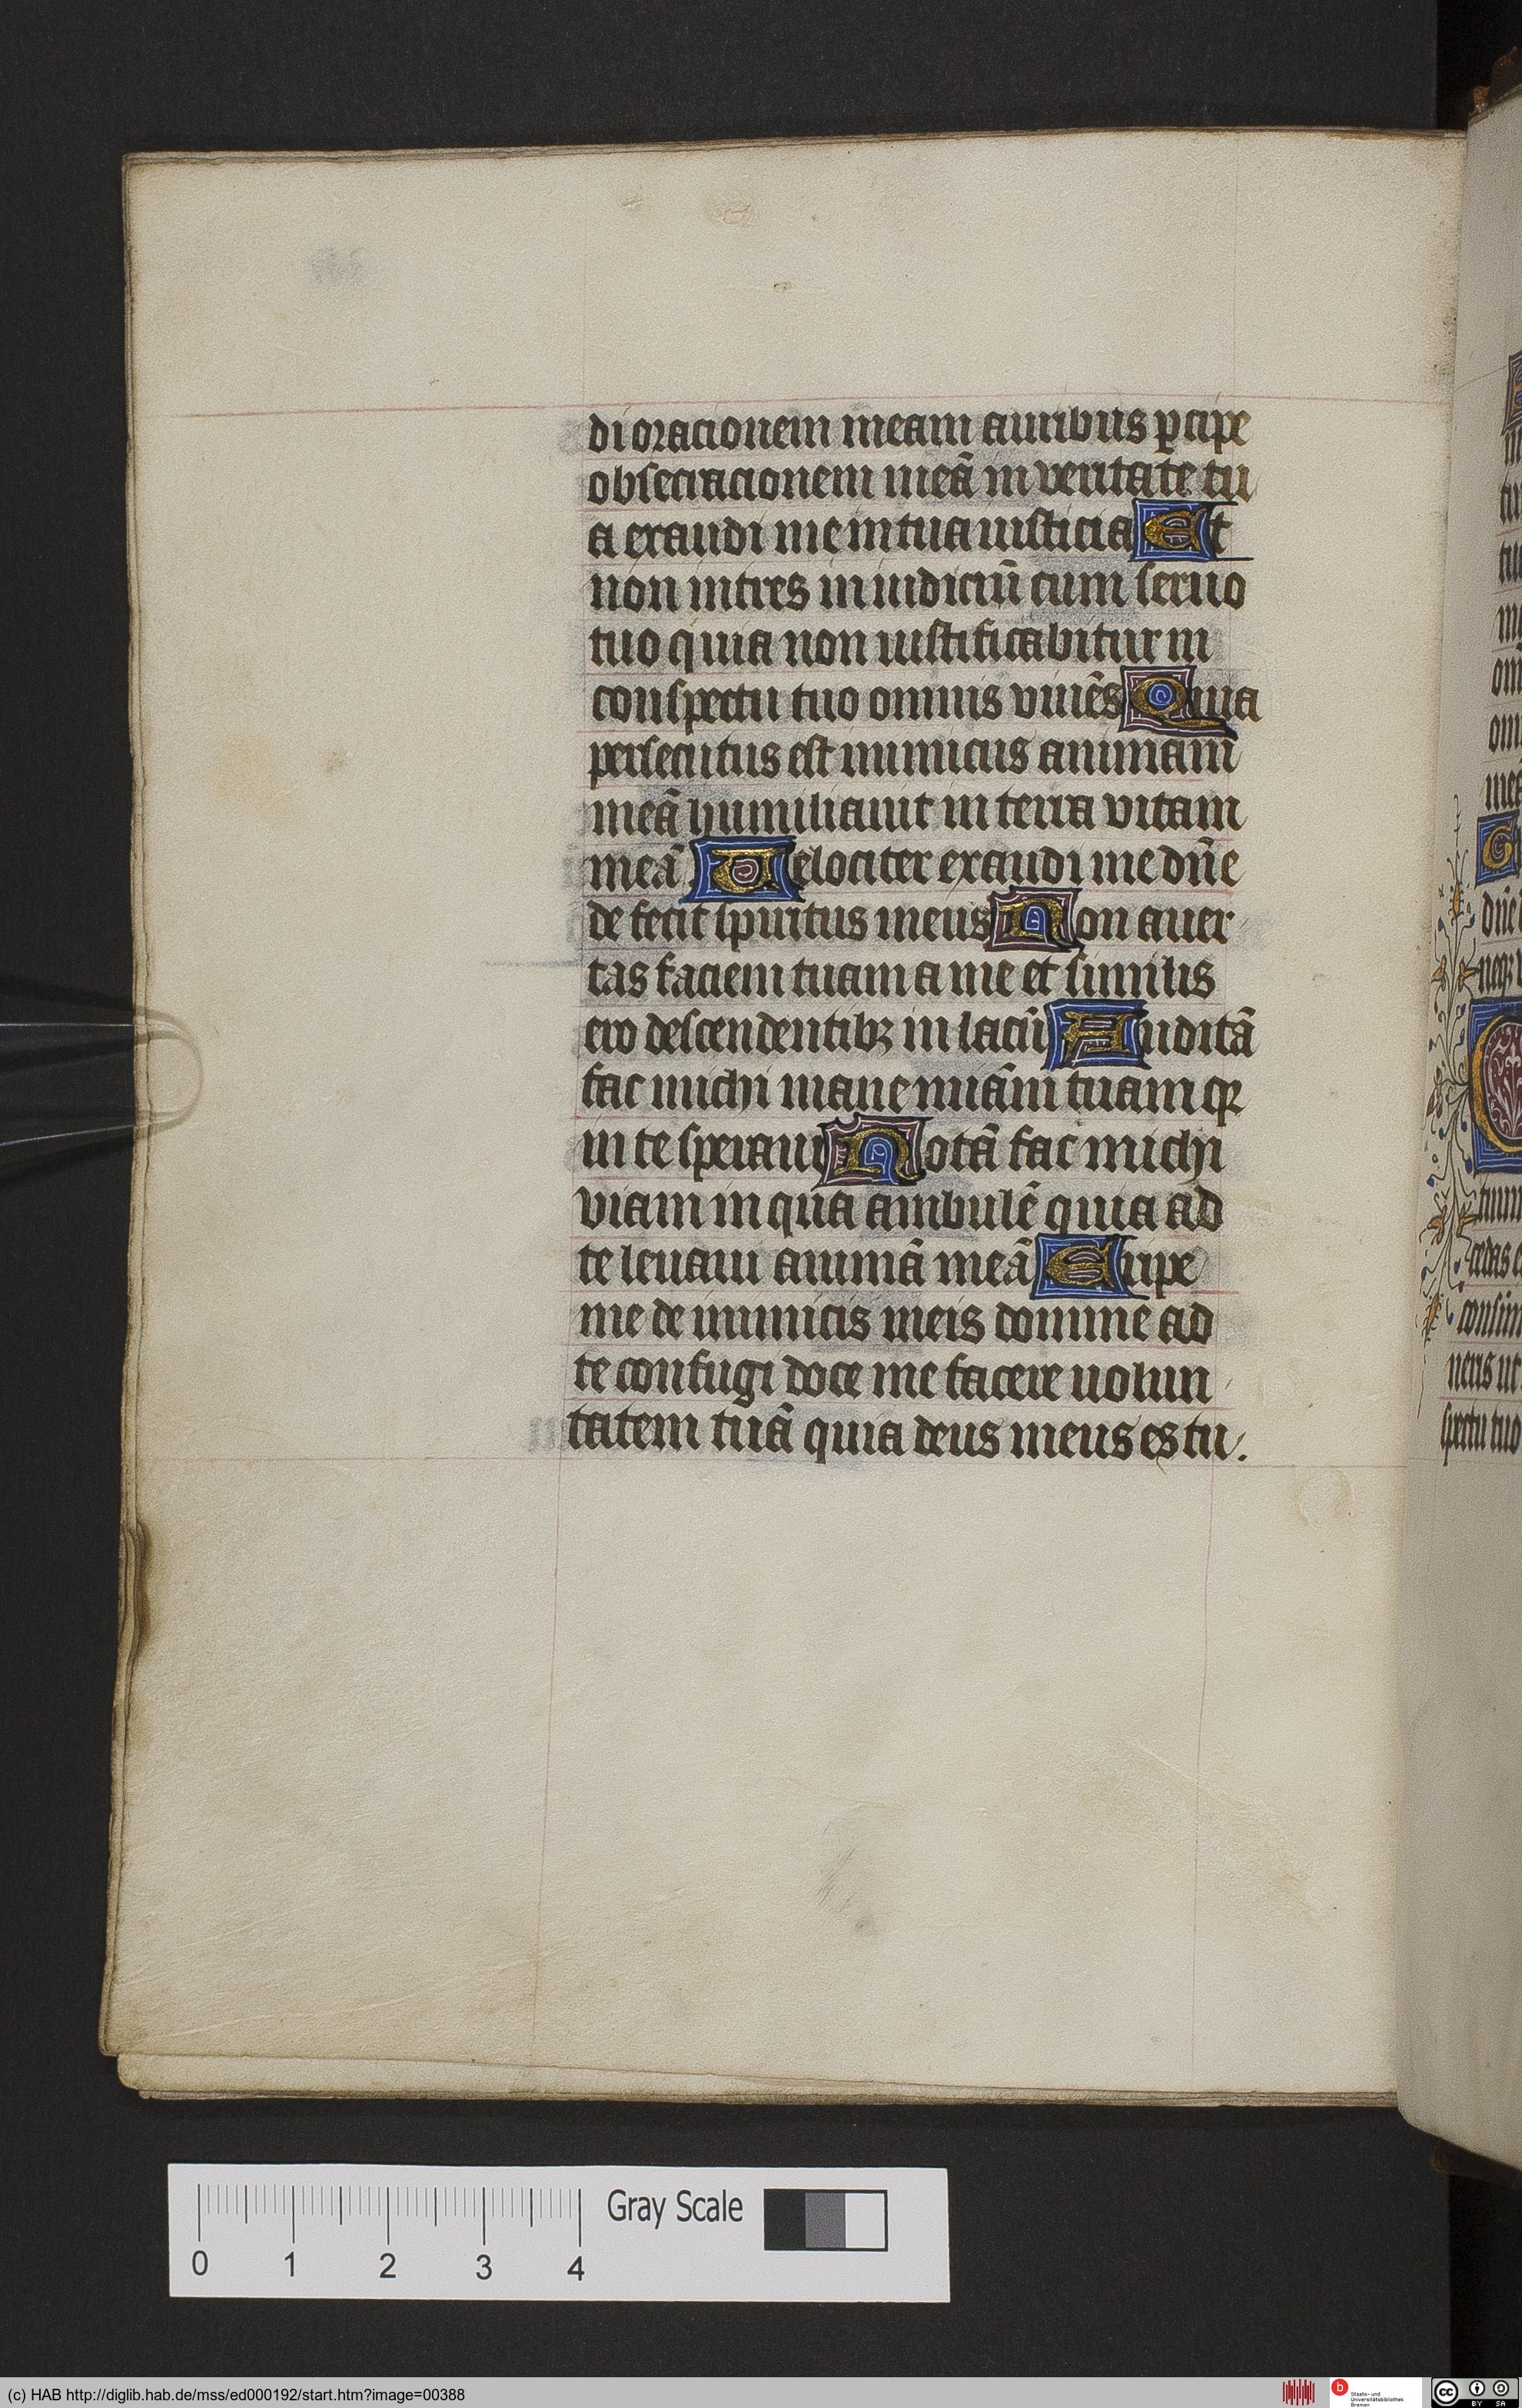 di oracionem meam auribus ꝑcipe
obsecracionem meã in veritate tu
a exaudi me in tua iusticia Et
non intres in iudiciũ cum seruo
tuo quia non iustificabitur in
conspectu tuo omnis viuẽs Quia
persecutus est inimicus animam
meã humiliauit in terra vitam
meã Velociter exaudi me dñe
defecit spiritus meus Non auer
tas faciem tuam a me et similis
ero descendentibꝫ in lacũ Auditã
fac michi mane miãm tuam qꝛ
in te speraui Notã fac michi
viam in qua ambulẽ quia ad
te leuaui animã meã Eripe
me de inimicis meis domine ad
te confugi doce me facere uolun
tatem tuã quia deus meus es tu.
dñe
tuo
Gray Scale
0 1 2 3 4
(c) HAB http://diglib.hab.de/mss/ed000192/start.htm?image=00388
Staats- und
Universitätsbibliothek
Bremen
cc BY SA